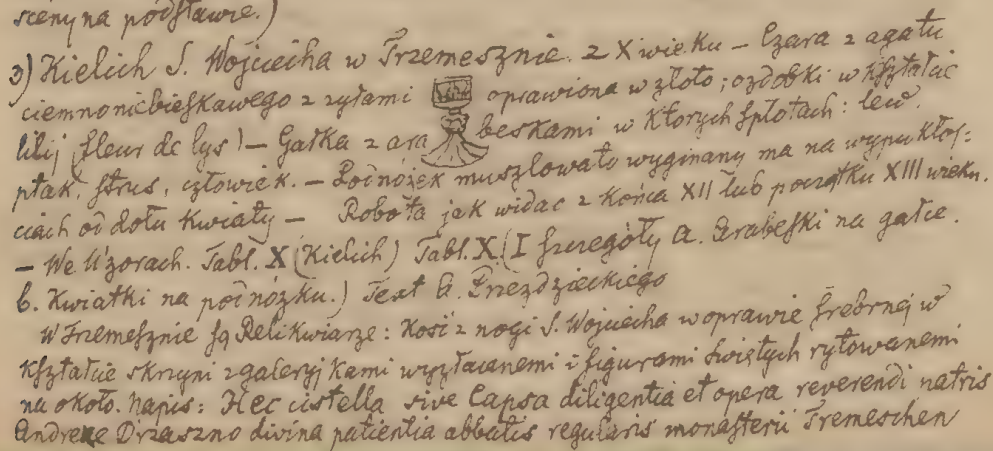 sceny na podstawie.)
3) Kielich S. Wojciecha w Trzemesznie. z X wieku – Czara z agatu
ciemnoniebieskawego z żyłami oprawiona w złoto; ozdobki w kształcie
lilij (fleur de lys) – Gałka z ara beskami w których splotach: lew.
ptak, strus, człowiek. – Podnóżek muszlowato wyginany ma na wypukłoś-
ciach od dołu kwiaty – Robota jak widac z końca XII lub początku XIII wieku.
– We Wzorach. Tabl. X (Kielich) Tabl. X. (I szczegóły a. Arabeski na gałce.
b. Kwiatki na podnózku.) Text A. Przezdzieckiego
W Trzemesznie są Relikwiarze: Kość z nogi S. Wojciecha w oprawie srebrnej w
Kształcie skrzyni z galeryjkami wyzłacanemi i figurami świętych rytowanemi
na około. napis: Hec cistella sive Capsa diligentia et opera reverendi patris
Andreae Drzaszno divina patientia abbatis regularis monasterii Tremeschen